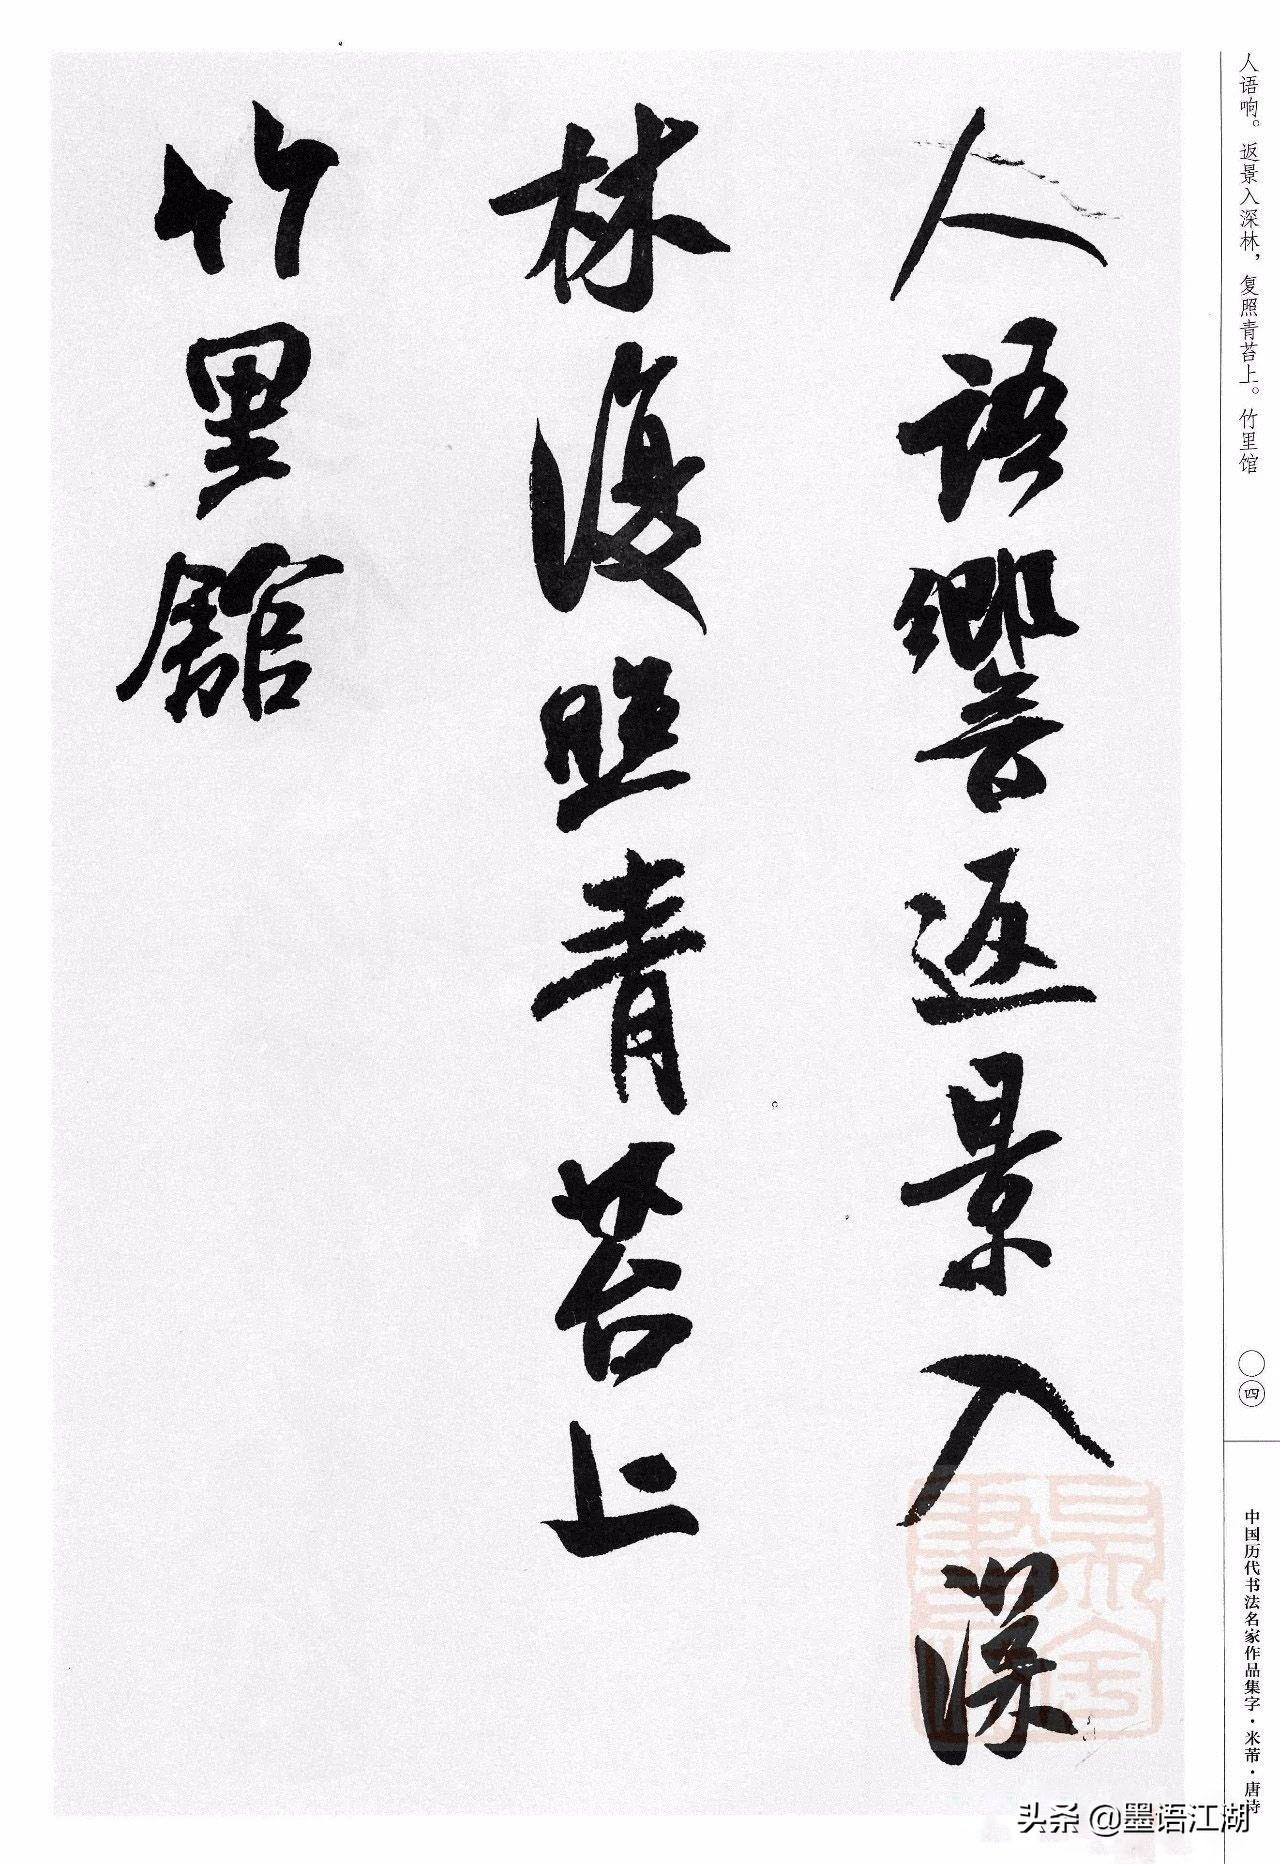 人語響返景入深
林復照青苔上
竹里館
人语响。返景入深林，复照青苔上。竹里馆
〇四
中国历代书法名家作品集字·米芾·唐诗
头条 @墨语江湖